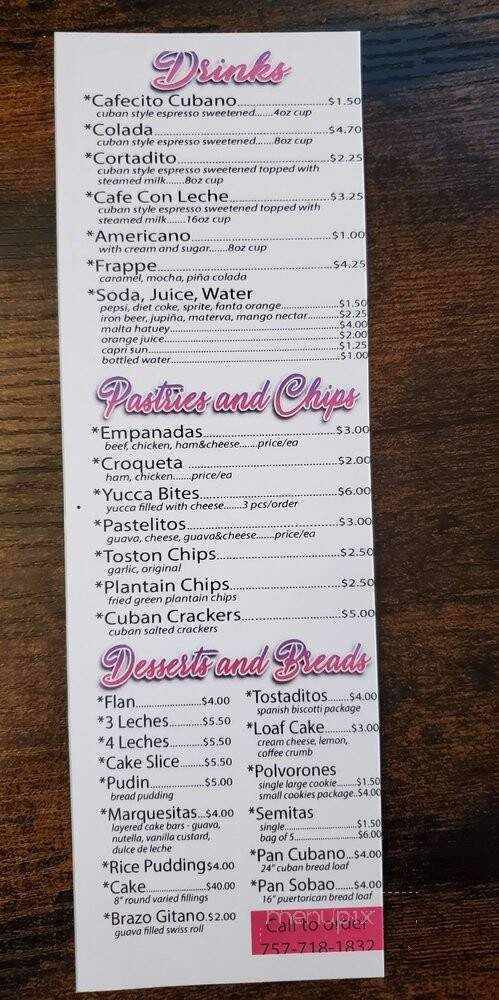 Drinks
*Cafecito Cubano..............................$1.50
cuban style espresso sweetened.......4oz cup
*Colada..............................$4.70
cuban style espresso sweetened.......8oz cup
*Cortadito..............................$2.25
cuban style espresso sweetened topped with
steamed milk.......8oz cup
*Cafe Con Leche..............................$3.25
cuban style espresso sweetened topped with
steamed milk.......16oz cup
*Americano..............................$1.00
with cream and sugar.......8oz cup
*Frappe..............................$4.25
caramel, mocha, piña colada
*Soda, Juice, Water
pepsi, diet coke, sprite, fanta orange..............................$1.50
iron beer, jupiña, materva, mango nectar...........$2.25
malta hatuey..............................$4.00
orange juice..............................$2.00
capri sun..............................$1.25
bottled water..............................$1.00
Pastries and Chips
*Empanadas..............................$3.00
beef, chicken, ham&cheese.......price/ea
*Croqueta ..............................$2.00
ham, chicken.......price/ea
*Yucca Bites..............................$6.00
yucca filled with cheese........3 pcs/order
*Pastelitos..............................$3.00
guava, cheese, guava&cheese.......price/ea
*Toston Chips..............................$2.50
garlic, original
*Plantain Chips..............................$2.50
fried green plantain chips
*Cuban Crackers..............................$5.00
cuban salted crackers
Desserts and Breads
*Flan......................$4.00
*3 Leches............$5.50
*4 Leches............$5.50
*Cake Slice........$5.50
*Pudin..................$5.00
bread pudding
*Marquesitas...$4.00
layered cake bars - guava,
nutella, vanilla custard,
dulce de leche
*Rice Pudding$4.00
*Cake....................$40.00
8" round varied fillings
*Brazo Gitano.$2.00
guava filled swiss roll
*Tostaditos.......$4.00
spanish biscotti package
*Loaf Cake.........$3.00
cream cheese, lemon,
coffee crumb
*Polvorones
single large cookie.........$1.50
small cookies package..$4.00
*Semitas
single..............................$1.50
bag of 5..............................$6.00
*Pan Cubano...$4.00
24" cuban bread loaf
*Pan Sobao.....$4.00
16" puertorican bread loaf
menupix
Call to order
757-718-1832